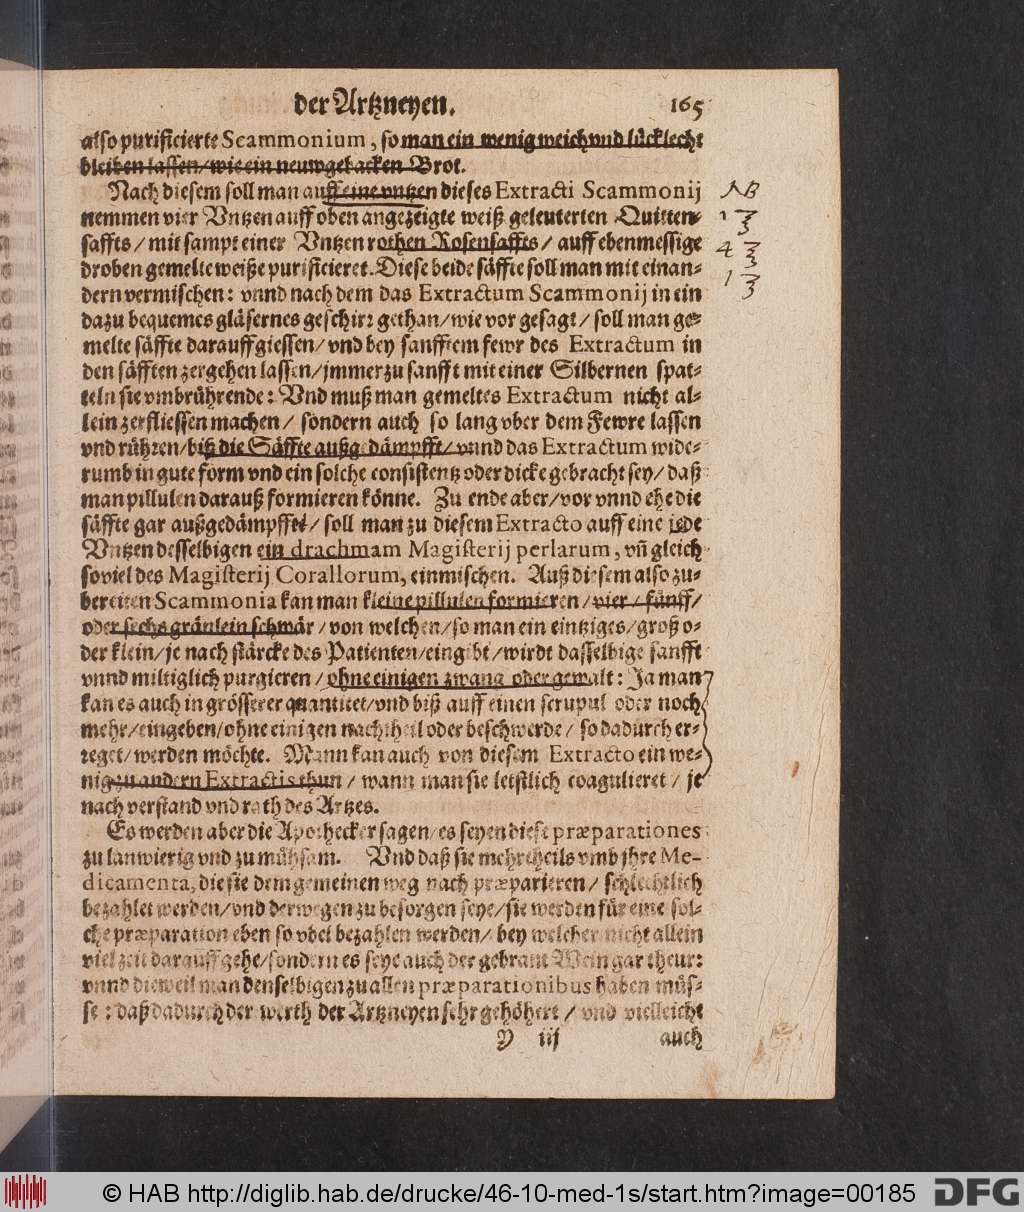 der Artzneyen. 165
also purificierte Scammonium, so man ein wenig weich vnd lücklecht
bleiben lassen/ wie ein neuwgebacken Brot.
Nach diesem soll man auff eine vntzen dieses Extracti Scammonij
nemmen vier Vntzen auff oben angezeigte weiß geleuterten Quitten-
saffts/ mit sampt einer Vntzen rothen Rosensaffts/ auff ebenmessige
droben gemelte weiße purificieret. Diese beide säffte soll man mit einan-
dern vermischen: vnnd nach dem das Extractum Scammonij in ein
dazu bequemes gläsernes geschirr gethan/ wie vor gesagt/ soll man ge-
melte säffte darauff giessen/ vnd bey sanfftem fewr des Extractum in
den säfften zergehen lassen/ jmmerzu sanfft mit einer Silbernen spat-
teln sie vmbrührende: Vnd muß man gemeltes Extractum nicht al-
lein zerfliessen machen/ sondern auch so lang vber dem Fewre lassen
vnd rühren/ biß die Säffte außgedämpfft/ vnnd das Extractum wide-
rumb in gute form vnd ein solche consistentz oder dicke gebracht sey/ daß
man pillulen darauß formieren könne. Zu ende aber/ vor vnnd ehe die
säffte gar außgedämpfft/ soll man zu diesem Extracto auff eine jede
Vntzen desselbigen ein drachmam Magisterij perlarum, vñ gleich
soviel des Magisterij Corallorum, einmischen. Auß diesem also zu-
bereiten Scammonia kan man kleine pillulen formieren/ vier/ fünff/
oder sechs gränlein schwär/ von welchen/ so man ein eintziges/ groß o-
der klein/ je nach stärcke des Patienten/ eingibt/ wirdt dasselbige sanfft
vnnd miltiglich purgieren/ ohne einigen zwang oder gewalt: Ja man
kan es auch in grösserer quantitet/ vnd biß auff einen scrupul oder noch
mehr/ eingeben/ ohne einigen nachtheil oder beschwerde/ so dadurch er-
reget/ werden möchte. Mann kan auch von diesem Extracto ein we-
nig zu andern Extractis thun/ wann man sie letstlich coagulieret/ je
nach verstand vnd rath des Artzes.
Es werden aber die Apothecker sagen/ es seyen diese præparationes
zu lanwierig vnd zu mühsam. Vnd daß sie mehrtheils vmb jhre Me-
dicamenta, die sie dem gemeinen weg nach præparieren/ schlechtlich
bezahlet werden/ vnd derwegen zu besorgen seye/ sie werden für eine sol-
che præparation eben so vbel bezahlen werden/ bey welcher nicht allein
viel zeit darauff gehe/ sondern es seye auch der gebrant Wein gar theur:
vnnd dieweil man denselbigen zu allen præparationibus haben müs-
se: daß dadurch der werth der Artzneyen sehr gehöhert/ vnd vielleicht
Y iij auch
NB
1 ℥
4 ℥
1 ℥
© HAB http://diglib.hab.de/drucke/46-10-med-1s/start.htm?image=00185 DFG